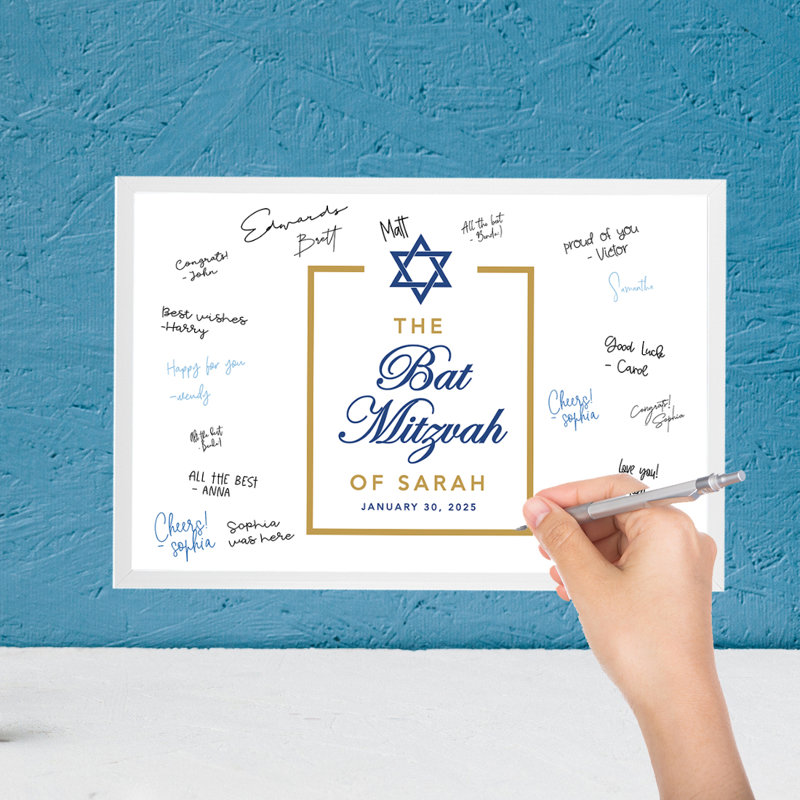 Edwards
Brett
Matt
All the best
Congrats!
- John
proud of you
- Victor
Samantha
Best wishes
-Harry
THE
Bat
Mitzvah
OF SARAH
JANUARY 30, 2025
Good Luck
- Carol
Happy for you
-wendy
Cheers!
- sophia
Congrats!
- Sophia
All the best
ALL THE BEST
- ANNA
Love you!
Cheers!
- sophia
Sophia
was here